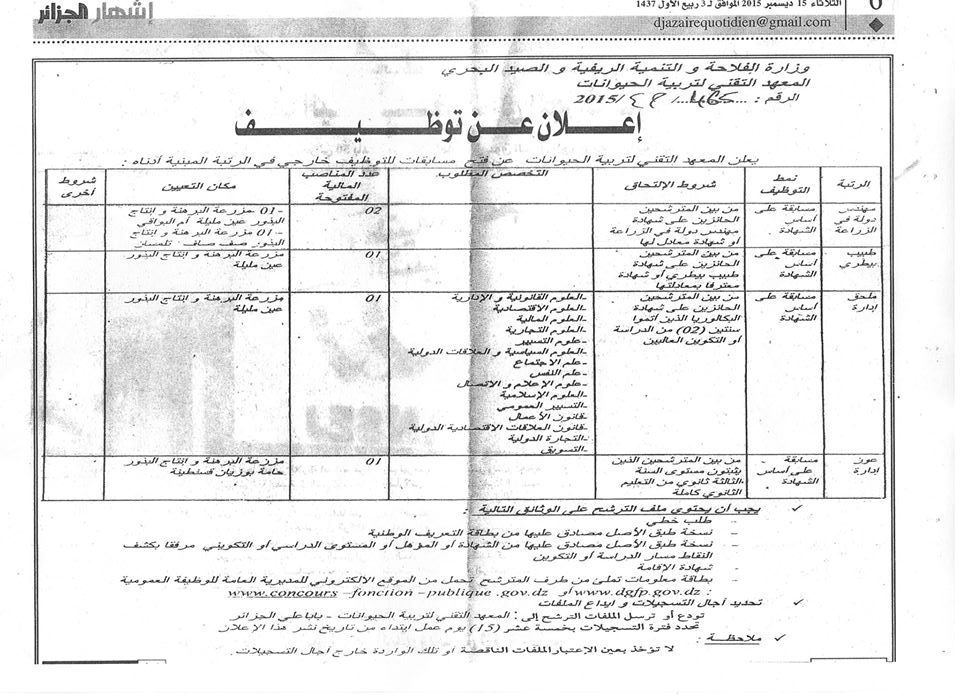 إشهار الجزائر
الثلاثاء 15 ديسمبر 2015 الموافق لـ 3 ربيع الأول 1437
6
djazairequotidien@gmail.com
وزارة الفلاحة و التنمية الريفية و الصيد البحري
المعهد التقني لتربية الحيوانات
الرقم : 2015/
إعلان عن توظيف
يعلن المعهد التقني لتربية الحيوانات عن فتح مسابقات للتوظيف خارجي في الرتبة المبنية أدناه :
الرتبة
نمط
التوظيف
شروط الإلتحاق
التخصص المطلوب
عدد المناصب
المالية
المفتوحة
مكان التعيين
شروط
أخرى
مهندس
دولة في
الزراعة
مسابقة على
أساس
الشهادة
من بين المترشحين
الحائزين على شهادة
مهندس دولة في الزراعة
أو شهادة معادل لها
02
-01 مزرعة البرهنة و إنتاج
البذور عين مليلة أم البواقي
-01 مزرعة البرهنة و إنتاج
البذور صف صاف - تلمسان
طبيب
بيطري
مسابقة على
أساس
الشهادة
من بين المترشحين
الحائزين على شهادة
طبيب بيطري أو شهادة
معترفا بمعادلتها
01
مزرعة البرهنة و إنتاج البذور
عين مليلة
ملحق
إدارة
مسابقة على
أساس
الشهادة
من بين المترشحين
الحائزين على شهادة
البكالوريا الذين أتموا
سنتين (02) من الدراسة
أو التكوين العاليين
-العلوم القانونية و الإدارية
-العلوم الاقتصادية
-العلوم المالية
-العلوم التجارية
-علوم التسيير
-العلوم السياسية و العلاقات الدولية
-علم الاجتماع
-علم النفس
-علوم الإعلام و الاتصال
-العلوم الإسلامية
-التسيير العمومي
-قانون الأعمال
-قانون العلاقات الاقتصادية الدولية
-التجارة الدولية
-التسويق
01
مزرعة البرهنة و إنتاج البذور
عين مليلة
عون
إدارة
مسابقة
على أساس
الشهادة
من بين المترشحين الذين
يثبتون مستوى السنة
الثالثة ثانوي من التعليم
الثانوي كاملة
01
مزرعة البرهنة و إنتاج البذور
حامة بوزيان قسنطينة
✓ يجب أن يحتوي ملف الترشح على الوثائق التالية :
- طلب خطي
- نسخة طبق الأصل مصادق عليها من بطاقة التعريف الوطنية
- نسخة طبق الأصل مصادق عليها من الشهادة أو المؤهل أو المستوى الدراسي أو التكويني مرفقا بكشف
النقاط مسار الدراسة أو التكوين
- شهادة الإقامة
- بطاقة معلومات تملئ من طرف المترشح تحمل من الموقع الالكتروني للمديرية العامة للوظيفة العمومية
: www.dgfp.gov.dz أو www.concours-fonction-publique.gov.dz
✓ تحديد آجال التسجيلات و إيداع الملفات
تودع أو ترسل الملفات الترشح إلى: المعهد التقني لتربية الحيوانات - بابا علي الجزائر
تحدد فترة التسجيلات بخمسة عشر (15) يوم عمل ابتداء من تاريخ نشر هذا الإعلان
✓ ملاحظة :
لا تؤخذ بعين الإعتبار الملفات الناقصة أو تلك الواردة خارج آجال التسجيلات.